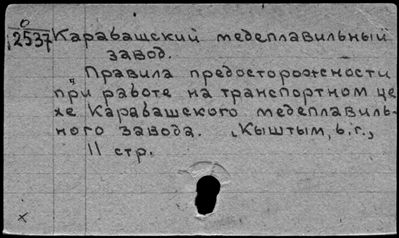 0
12537 Карабашский медеплавильный
завод.
Правила предосторожности
при работе на транспортном це-
хе Карабашского медеплавиль-
ного завода. Кыштым, б.г.,
11 стр.
x